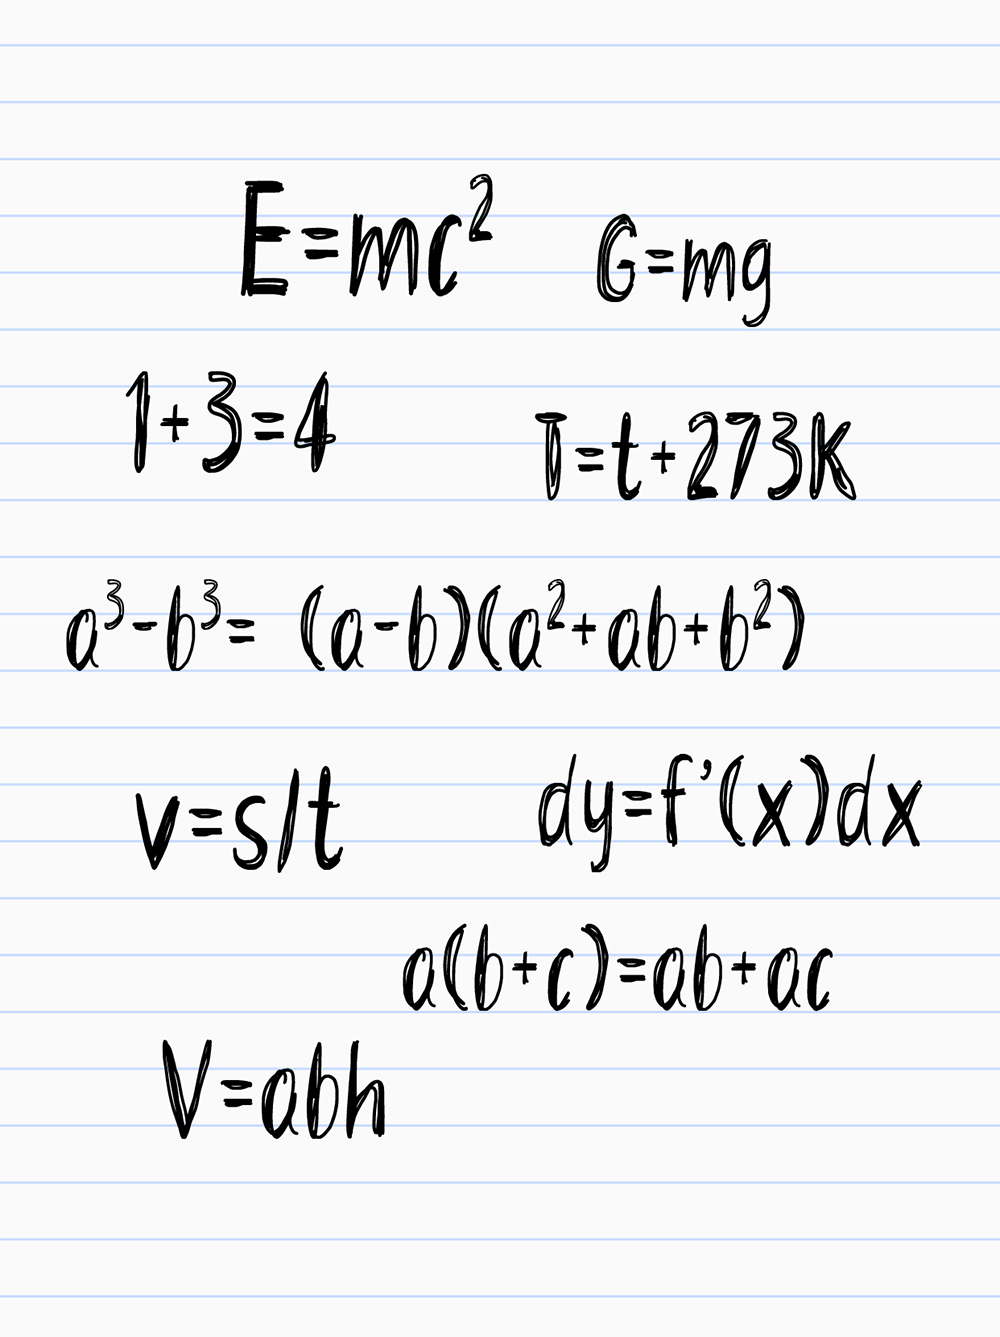 E=mc²
G=mg
1+3=4
T=t+273K
a³-b³= (a-b)(a²+ab+b²)
v=s/t
dy=f'(x)dx
a(b+c)=ab+ac
V=abh